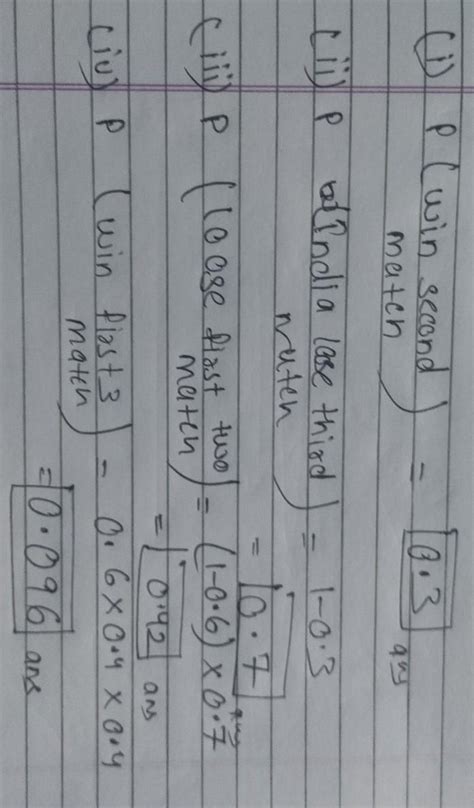 (i) P (win second match) = 0.3 ans
(ii) P (India lose third match) = 1-0.3
= 0.7 ans
(iii) P (loose first two match) = (1-0.6) × 0.7
= 0.42 ans
(iv) P (win first 3 match) = 0.6 × 0.4 × 0.4
= 0.096 ans